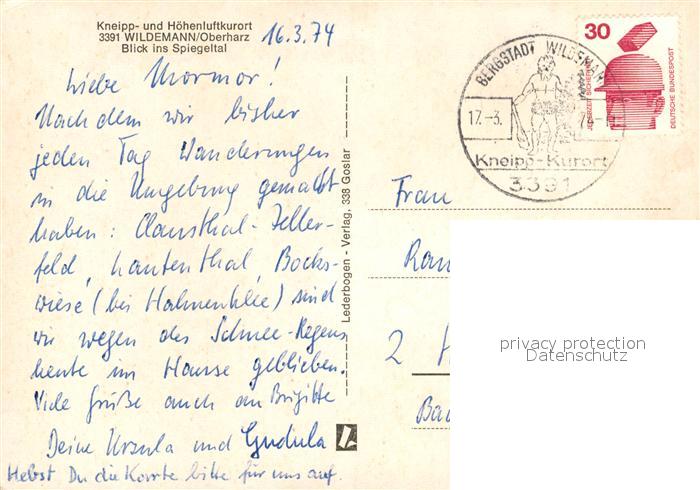 Kneipp- und Höhenluftkurort
3391 WILDEMANN/Oberharz
Blick ins Spiegeltal
16.3.74
Liebe Mormor!
Nachdem wir bisher
jeden Tag Wanderungen
in die Umgebung gemacht
haben: Clausthal-Zeller-
feld, Lautenthal, Bocks-
wiese (bei Hahnenklee) sind
wir wegen des Schnee-Regens
heute im Hause geblieben.
Viele Grüße auch an Brigitte
Deine Ursula und Gudula
Hebst Du die Karte bitte für uns auf.
Lederbogen - Verlag, 338 Goslar
BERGSTADT WILDEMANN
17.-3.
Kneipp-Kurort
3391
30
JEDERZEIT SICHERHEIT
DEUTSCHE BUNDESPOST
Frau
2 H
privacy protection
Datenschutz